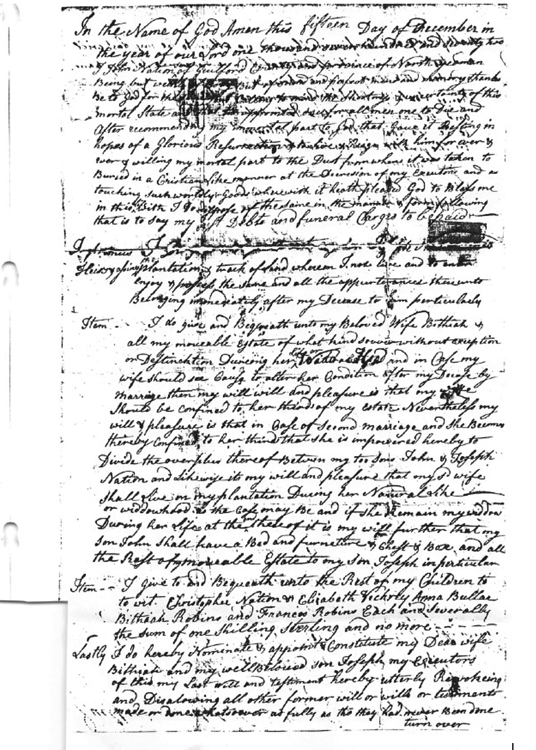 In the Name of God Amen this fifteen Day of December in
the year of our Lord one thousand seven hundred and Seventy two
I John Nation of Guilford County and province of North
Being but but of sound and perfect mind and memory thanks
Be to God for the to mind the uncertainty of this
mortal State and that for all once to Die and
After recommending my immortal part to God that gave it Resting in
hopes of a Glorious Resurrection & to Reign with him for ever &
ever & willing my mortal part to the Dust from whence it was taken to
Buried in a Cristian like manner at the Decresion of my Executors and as
touching such worldly Goods wherewith it heath pleased God to Bless me
in this life I Dispose of the same in the manner & form following
that is to say my Debts and funeral Carges to be paid
I give
plantation & track of land wheron I now live and to
enjoy & possess the same and all the appurtenances thereunto
Belonging immediately after my Decese to him particulerly
Item I do give and Beqweath unto my Beloved Wife Bithiah
all my moveable Estate of what kind soever without exseption
or Destinchtion Duering her Widdowhood and in Case my
wife should see Caus to alter her Condition after my Decese by
marriage then my will will and pleasure is that my wife
Should be confined to her thirds of my Estate Nevertheless my
will & pleasure is that in Case of Second marriage and She Becoms
thereby Confined to her thirds that she is impowered hereby to
Divide the overplus thereof Between my two Sons John & Joseph
Nation and Likewise its my will and pleasure that my sd wife
Shall Live on my plantation Duering her Natural Life
or widdowhood as the Case may Be and if she Remain my widdow
During her Life at the of it is my will further that my
son John Shall have a Bed and furneture & Chest & Box and all
the Rest of moveable Estate to my son Joseph in particular
Item I Give to and Bequeath unto the Rest of my Children to
to wit Christopher Nation Elizabeth Vickorly Anna Bullar
Bithiah Robins and Frances Robins Each and Severally
the sum of one Shilling Sterling and no more
Lastly I do hereby Nominate & appoint & Constitute my Dear wife
Bithiah and my well Beloved son Joseph my Executors
of this my Last will and testment hereby utterly Revokeing
and Disalowing all other former will or wills or testments
made or done whatsoever as fully as tho they had never Been done
turn over